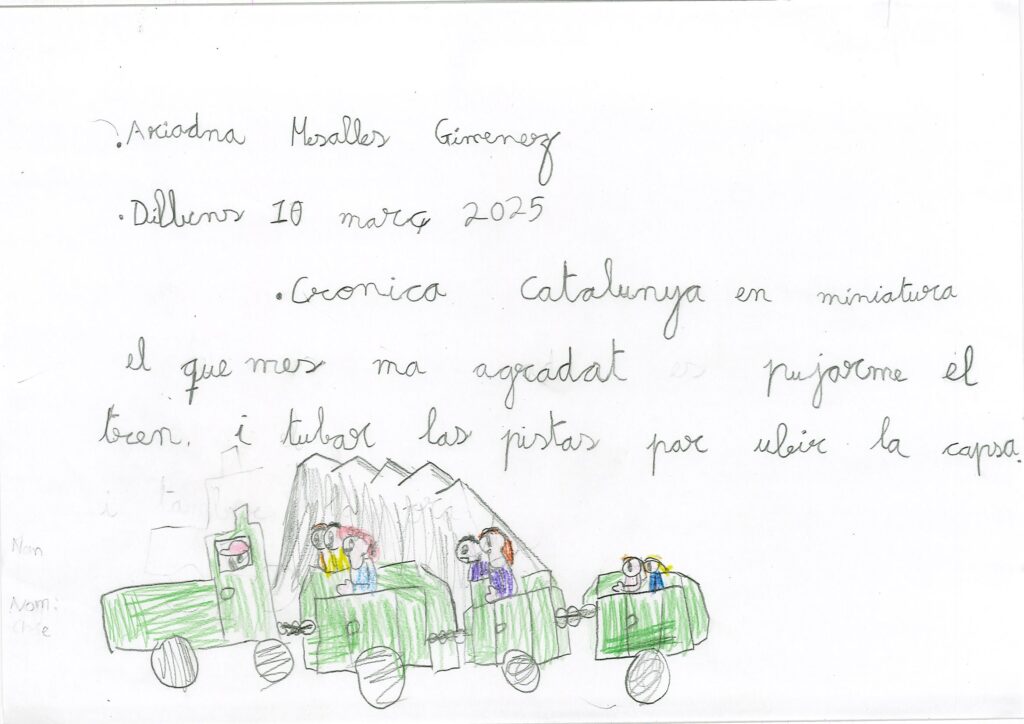 .Ariadna Mesalles Gimenez
.Dilluns 10 març 2025
.Cronica Catalunya en miniatura
el que mes ma agradat es pujarme él
tren. i tubar las pistas par ubir la capsa.
i tam
Nom: